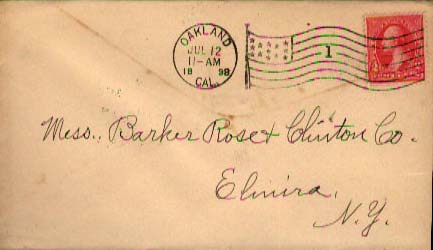 OAKLAND
JUL 12
11-AM
1898
CAL.
1
Mess. Barker Rose & Clinton Co.
Elmira,
N.Y.